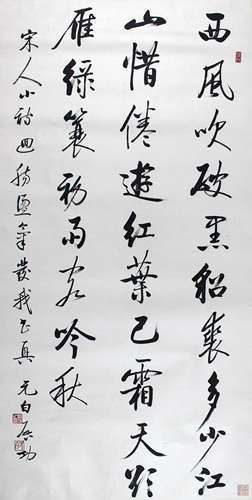 西風吹破黑貂裘多少江
山惜倦遊紅葉已霜天欲
雁綠蓑初雨客吟秋
宋人小詩迴腸蕩氣發我
元白啟功